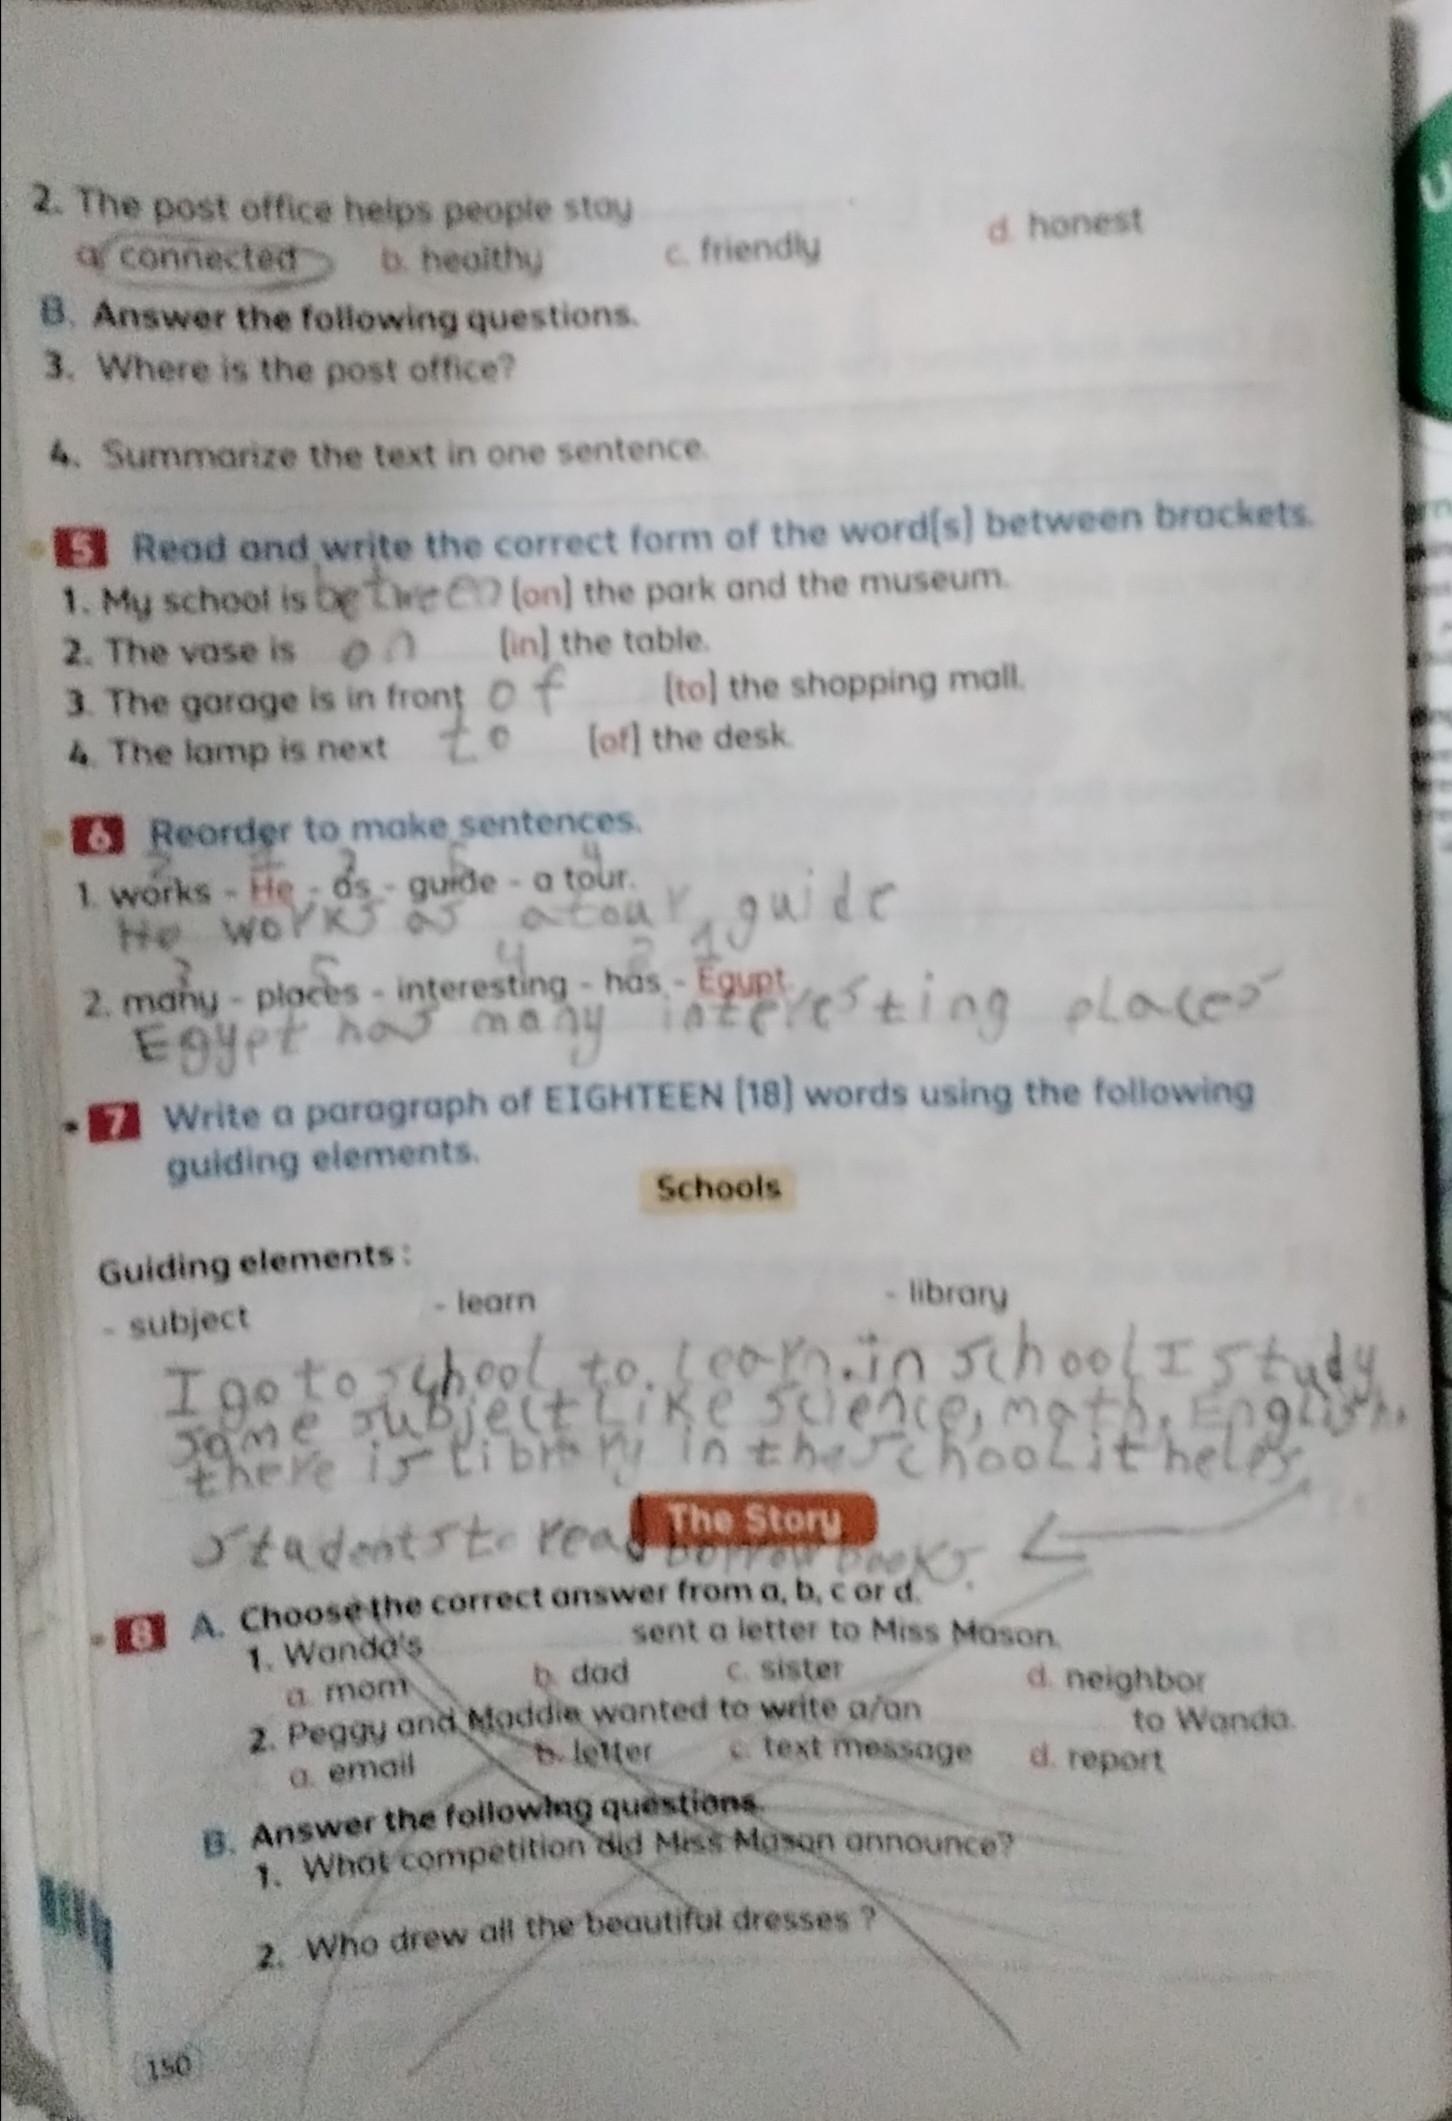 2. The post office helps people stay
a. connected b. healthy c. friendly d. honest
B. Answer the following questions.
3. Where is the post office?
4. Summarize the text in one sentence.
5 Read and write the correct form of the word(s) between brackets.
1. My school is between (on) the park and the museum.
2. The vase is on (in) the table.
3. The garage is in front of (to) the shopping mall.
4. The lamp is next to (of) the desk.
6 Reorder to make sentences.
2 1 3 5 4
1. works - He - as - guide - a tour.
He works as a tour guide
3 5 4 2 1
2. many - places - interesting - has - Egypt.
Egypt has many interesting places
7 Write a paragraph of EIGHTEEN (18) words using the following
guiding elements.
Schools
Guiding elements :
- subject - learn - library
I go to school to learn. in school I study
some subject like science, math, English,
there is library in the school it helps
The Story
students to read borrow books.
8 A. Choose the correct answer from a, b, c or d.
1. Wanda's sent a letter to Miss Mason.
a. mom b. dad c. sister d. neighbor
2. Peggy and Maddie wanted to write a/an to Wanda.
a. email b. letter c. text message d. report
B. Answer the following questions.
1. What competition did Miss Mason announce?
2. Who drew all the beautiful dresses ?
150